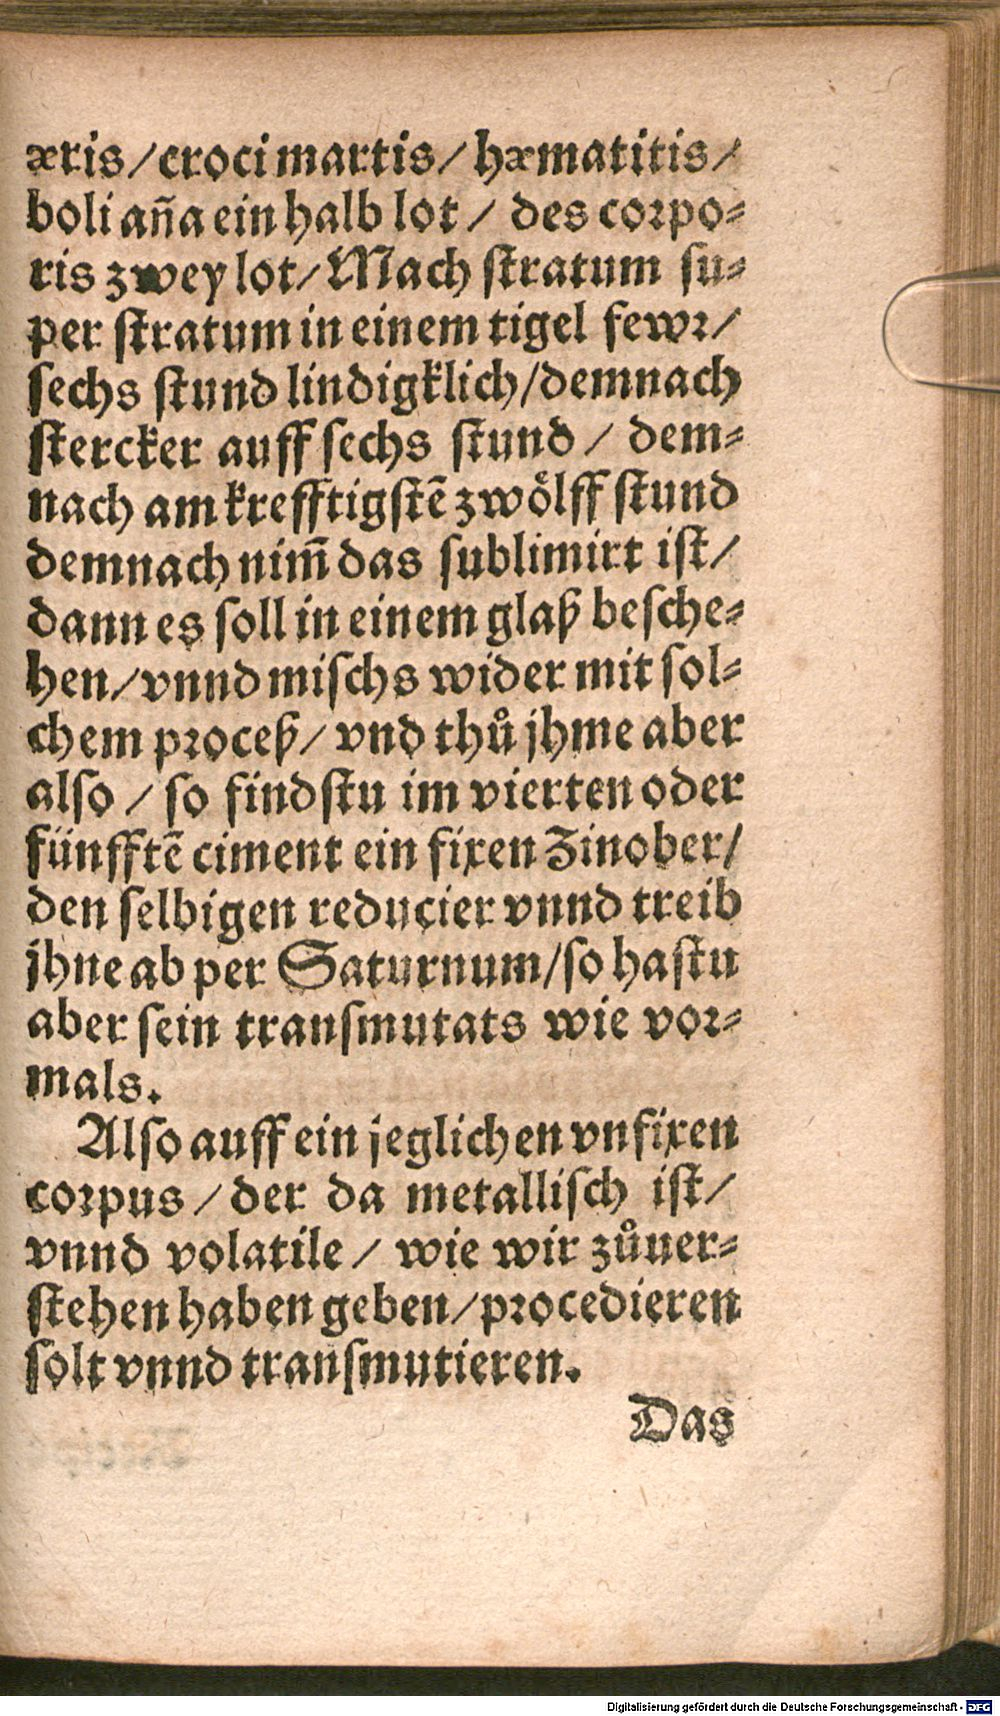 æris/croci martis/hæmatitis/
boli aña ein halb lot/ des corpo⸗
ris zwey lot/Mach ſtratum ſu⸗
per ſtratum in einem tigel fewr/
ſechs ſtund lindigklich/demnach
ſtercker auff ſechs ſtund/ dem⸗
nach am krefftigſtē zwölff ſtund
demnach nim̃ das ſublimirt iſt/
dann es ſoll in einem glaß beſche⸗
hen/vnnd miſchs wider mit ſol⸗
chem proceß/ vnd thů jhme aber
alſo/ ſo findſtu im vierten oder
fünfftē ciment ein fixen Zinober/
den ſelbigen reducier vnnd treib
jhne ab per Saturnum/ſo haſtu
aber ſein tranſmutats wie vor⸗
mals.
Alſo auff ein jeglichen vnfixen
corpus/ der da metalliſch iſt/
vnnd volatile/ wie wir zůuer⸗
ſtehen haben geben/procedieren
ſolt vnnd tranſmutieren.
Das
Digitalisierung gefördert durch die Deutsche Forschungsgemeinschaft - DFG